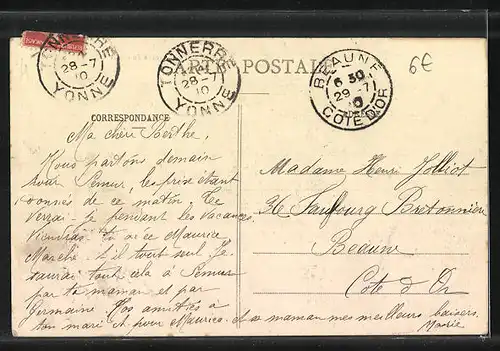 TONNERRE
28-7
10
YONNE
TONNERRE
28-7
10
YONNE
CARTE POSTALE
BEAUNE
6 30
29-7
10
COTE D'OR
6€
CORRESPONDANCE
Ma chère Berthe,
Nous partons demain
pour Semur, les prix étant
donnés de ce matin. Te
verrai-je pendant les vacances,
Viendras-tu avec Maurice
Marche-t-il tout seul Je
saurai tout cela à Semur
par ta maman et par
Germaine Nos amitiés à
ton mari et pour Maurice et sa maman mes meilleurs baisers.
Marie
Madame Henri Jolliot
Faubourg Bretonnière
Beaune
Cote d'Or